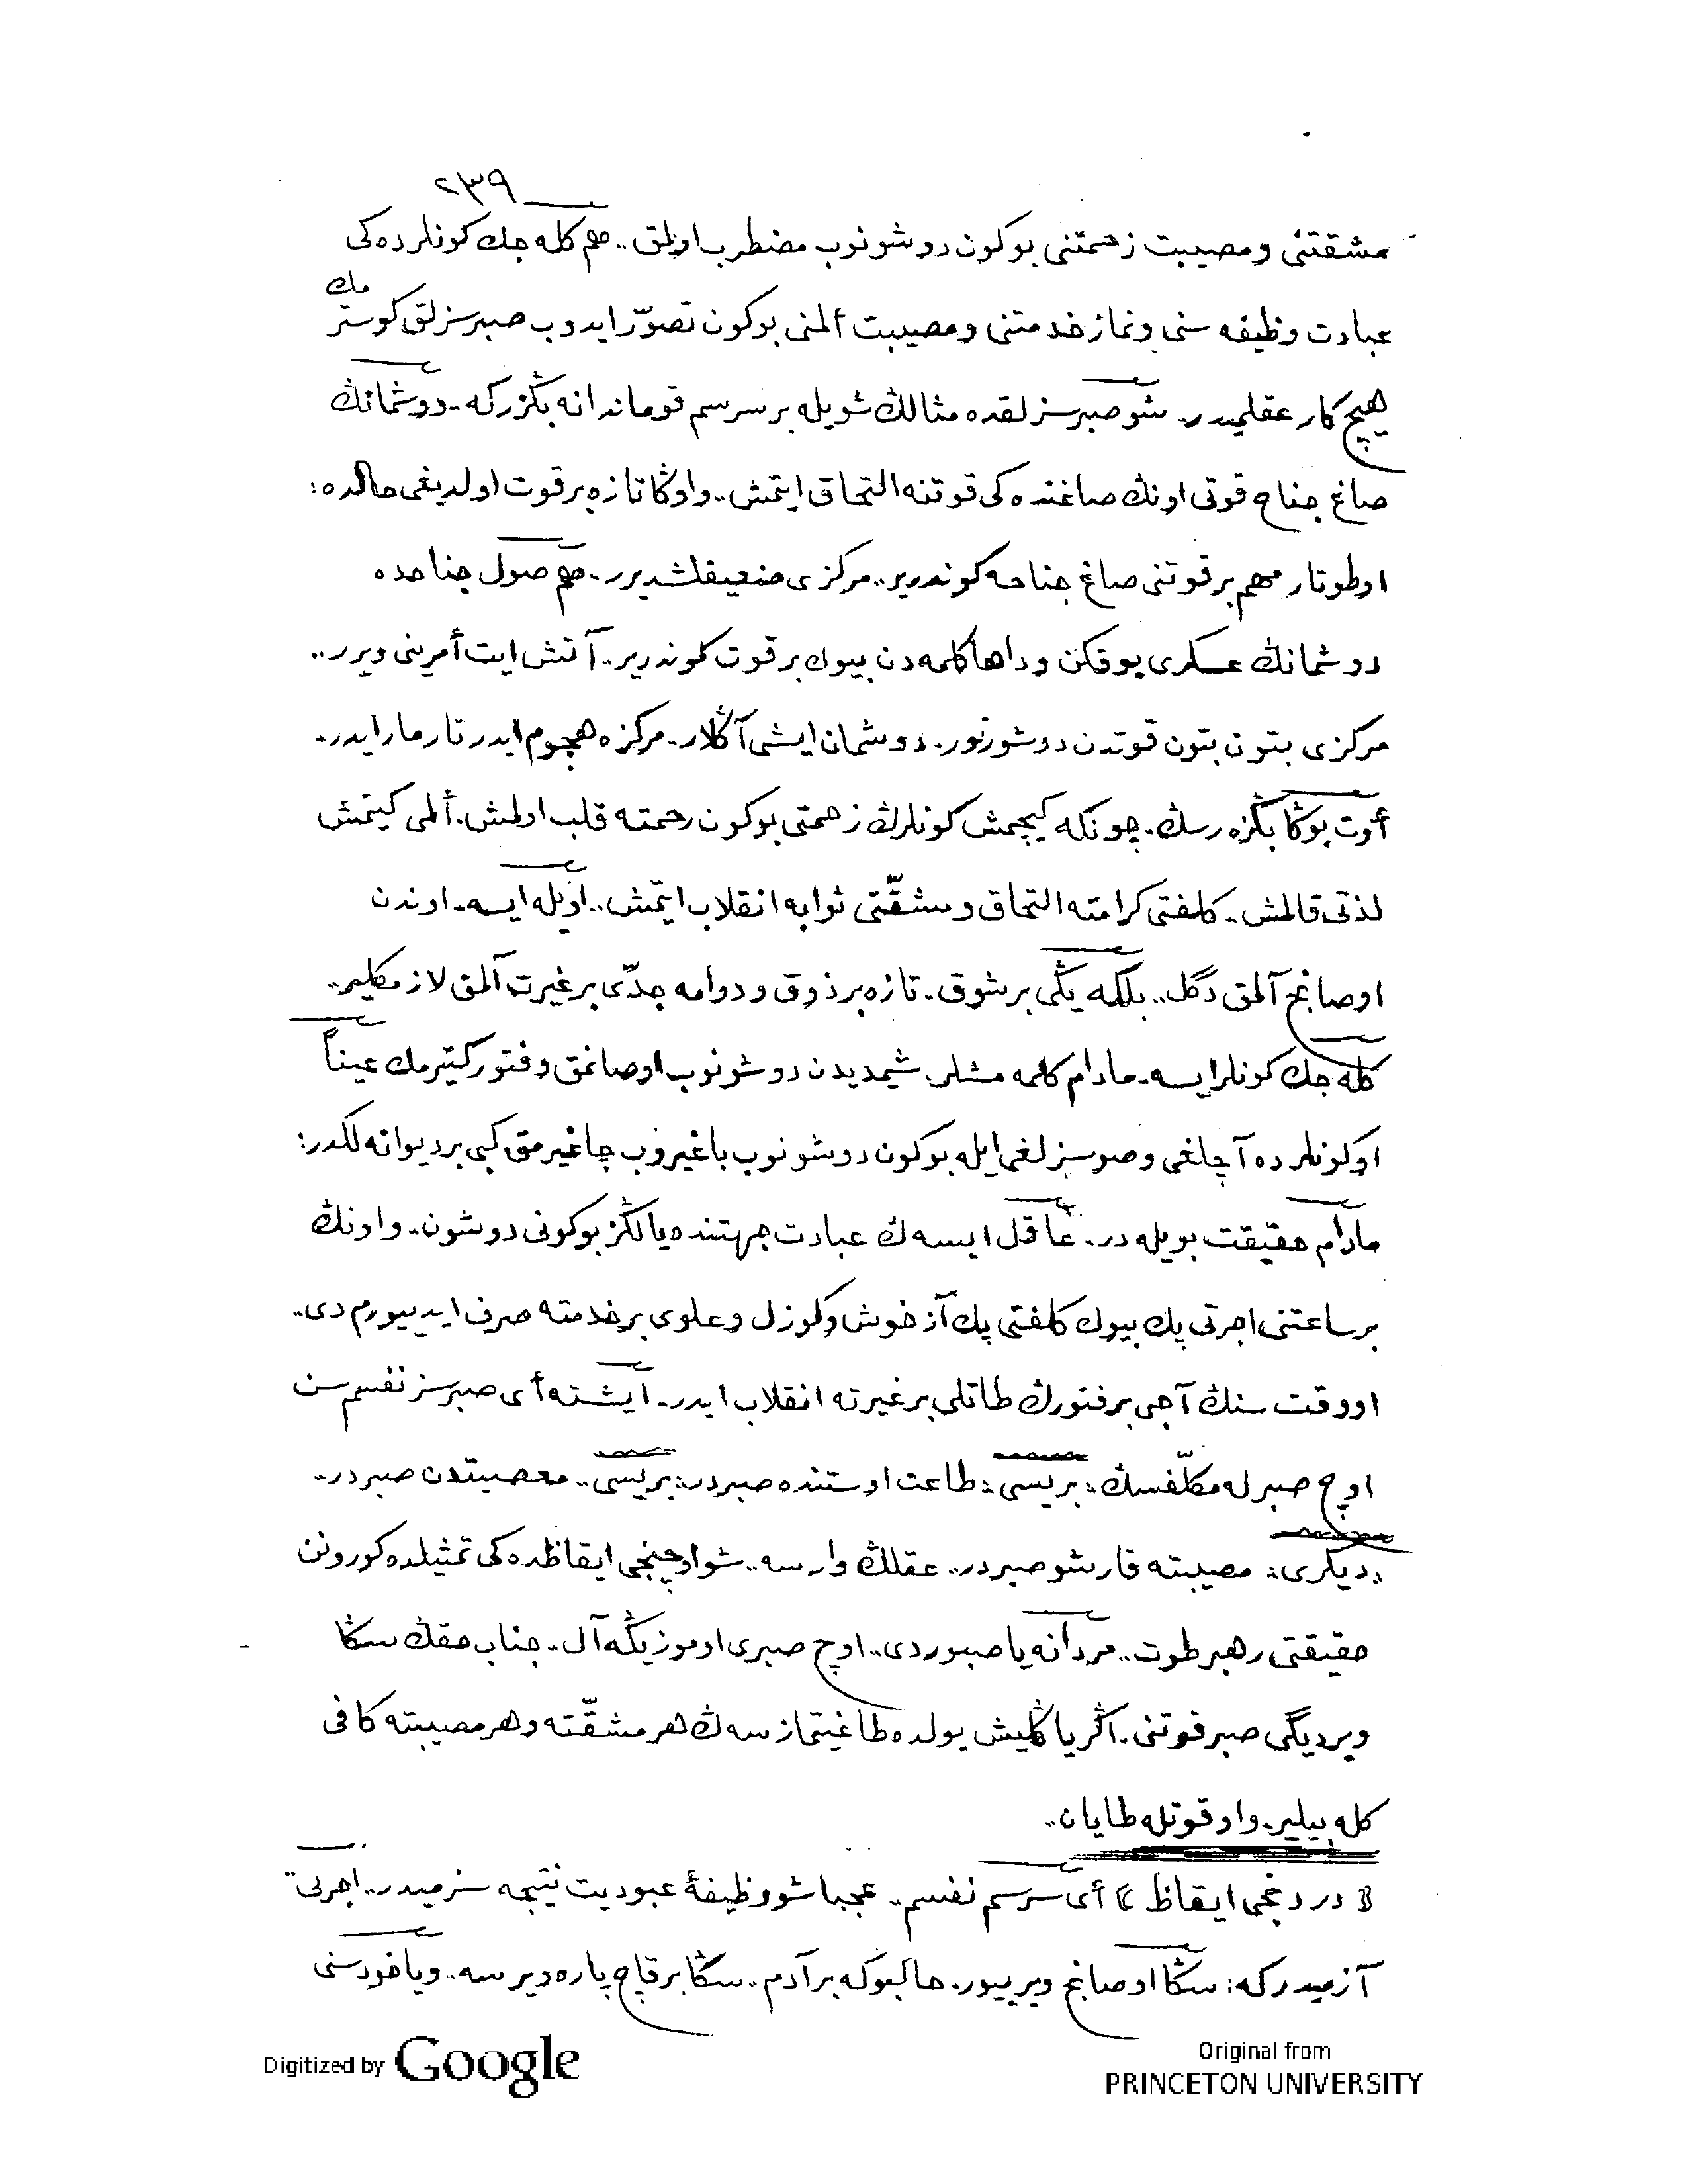 ٢٣٩
مشقتنى ومصيبت زحمتنى بوكون دوشونوب مضطرب اولمق.. هم كله جك كونلرده كى
عبادت وظيفه سنى ونماز خدمتنى ومصيبت ألمنى بوكون تصوّر ايدوب صبرسزلق كوسترمك
هيچ كار عقلميدر. شو صبرسزلقده مثالڭ شويله بر سرسم قوماندانه بڭزركه.. دوشمانڭ
صاغ جناح قوتى اونڭ صاغنده كى قوتنه التحاق ايتمش.. واوڭا تازه بر قوت اولديغى حالده:
اوطوتار مهم بر قوتنى صاغ جناحه كوندرير.. مركزى ضعيفلشديرر.. هم صول جناحده
دوشمانڭ عسكرى يوقكن وداها كلمه دن بيوك بر قوت كوندرير.. آتش ايت أمرينى ويرر..
مركزى بتون بتون قوتدن دوشورتور. دوشمان ايشى آڭلار. مركزه هجوم ايدر تار مار ايدر.
أوت بوڭا بڭزه رسڭ. چونكه كيچمش كونلرڭ زحمتى بوكون رحمته قلب اولمش. ألمى كيتمش
لذتى قالمش. كلفتى كرامته التحاق ومشقّتى ثوابه انقلاب ايتمش.. اويله ايسه. اوندن
اوصانج آلمق دگل.. بلكه يڭى بر شوق. تازه بر ذوق ودوامه جدّى بر غيرت آلمق لازمكلير..
كله جك كونلر ايسه. مادام كلمه مشلر. شيمديدن دوشونوب اوصانمق وفتور كتيرمك عيناً
او كونلرده آچلغى وصوسزلغى ايله بوكون دوشونوب باغيروب چاغيرمق كبى بر ديوانه لكدر:
مادام حقيقت بويله در. عاقل ايسه ڭ عبادت جهتنده يالڭز بوكونى دوشون. واونڭ
بر ساعتنى اجرتى پك بيوك كلفتى پك آز خوش وكوزل وعلوى بر خدمته صرف ايدييورم دى..
او وقت سنڭ آجى بر فتورڭ طاتلى بر غيرته انقلاب ايدر. ايشته أى صبرسز نفسم سن
اوچ صبر له مكلّفسڭ: بريسى: طاعت اوستنده صبردر: بريسى.. معصيتدن صبردر..
ديكرى: مصيبته قارشو صبردر.. عقلڭ وارسه.. شو اوچنجى ايقاظده كى تمثيلده كورونن
حقيقتى رهبر طوت.. مردانه يا صبور دى.. اوچ صبرى اوموزيڭه آل. جناب حقڭ سڭا
ويرديگى صبر قوتنى. اگر ياڭليش يولده طاغيتمازسه ڭ هر مشقّته وهر مصيبته كافى
كله بيلير. واو قوتله طايان..
﴿ دردنجى ايقاظ ﴾ أى سرسم نفسم.. عجبا شو وظيفۀ عبوديت نتيجه سزميدر.. اجرتى
آزميدركه: سڭا اوصانج ويرييور. حالبوكه بر آدم.. سڭا بر قاچ پاره ويرسه.. وياخود سنى
Digitized by Google
Original from
PRINCETON UNIVERSITY